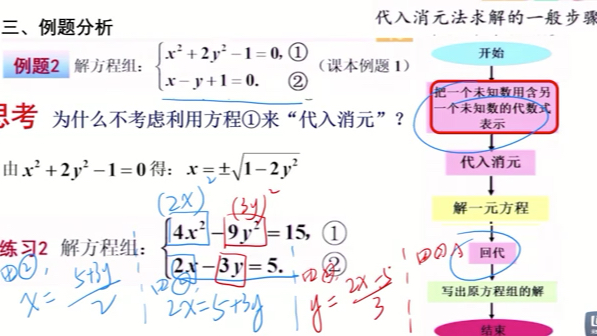 代入消元法求解的一般步骤
三、例题分析
例题2 解方程组：{x²+2y²-1=0, ① x-y+1=0. ② （课本例题1）
思考 为什么不考虑利用方程①来“代入消元”？
由 x²+2y²-1=0 得：x=±√(1-2y²)
(2x)² (3y)²
练习2 解方程组：{4x²-9y²=15, ① 2x-3y=5. ②
由②: x=(5+3y)/2
由②: 2x=5+3y
由②: y=(2x-5)/3
由①
开始
把一个未知数用含另
一个未知数的代数式
表示
代入消元
解一元方程
回代
写出原方程组的解
结束